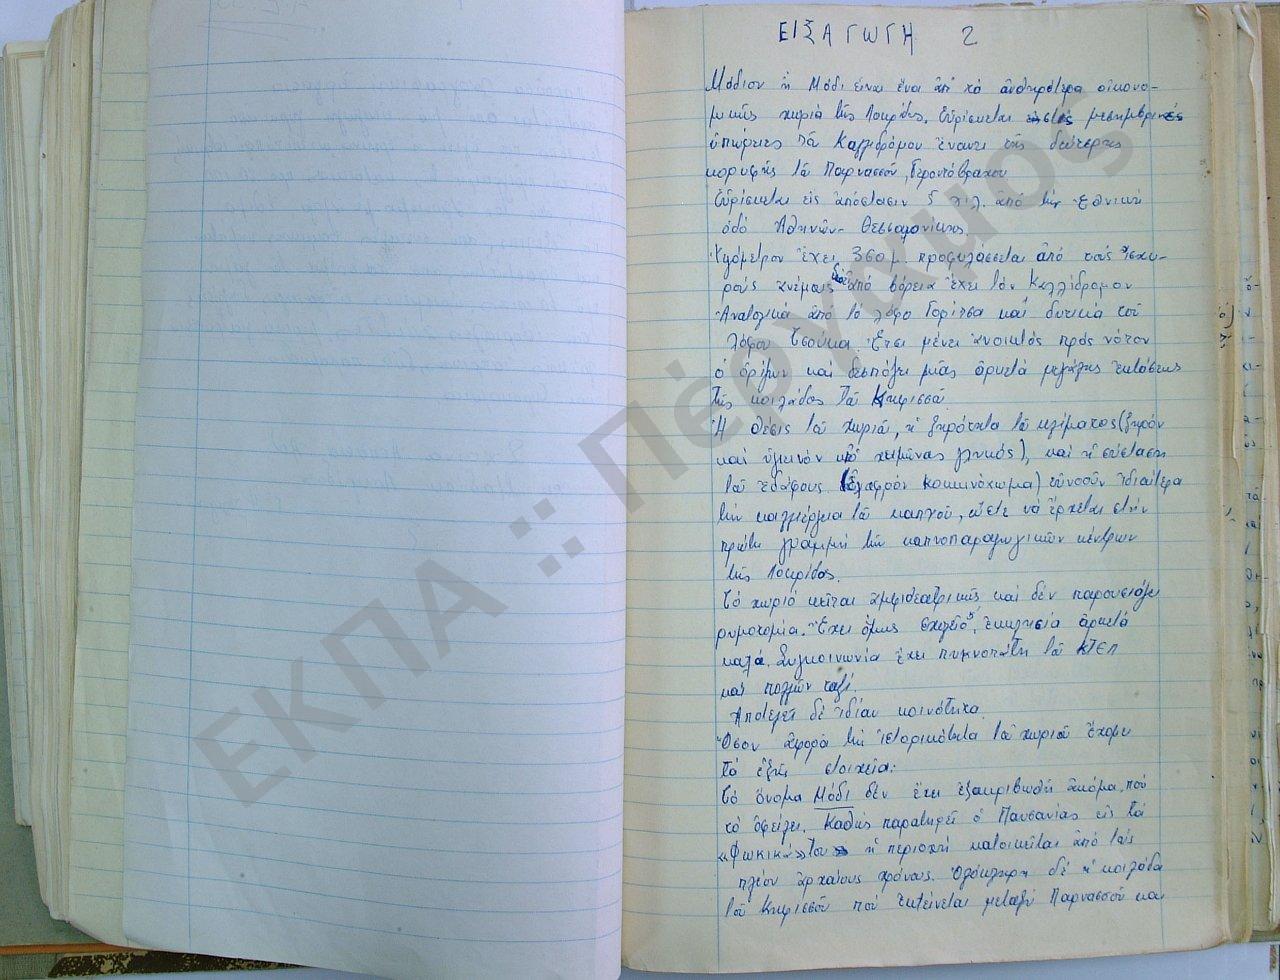 ΕΙΣΑΓΩΓΗ 2
Μόδιον ἤ Μόδι εἶναι ἕνα ἀπ τὰ ἀνθηρότερα οἰκονο-
μικῶς χωριά τῆς Λοκρίδος. Εὑρίσκεται στὶς μεσημβρινές
ὑπώρειες τοῦ Καλλιδρόμου ἔναντι τῆς δεύτερης
κορυφῆς τοῦ Παρνασσοῦ, Γεροντόβραχου
Εὑρίσκεται εἰς ἀπόστασιν 5 χιλ. ἀπό τήν Ἐθνική
ὁδό Ἀθηνῶν - Θεσσαλονίκης.
Ὑψόμετρον ἔχει 360 μ. προφυλάσσεται ἀπό τούς ἰσχυ-
ρούς ἀνέμους διότι ἀπό βόρεια ἔχει τόν Καλλίδρομον
Ἀνατολικά ἀπό τό λόφο Γορίτσα καί δυτικά τοῦ
λόφου Τσούκα. Ἔτσι μένει ἀνοικτός πρός νότον
ὁ ὁρίζων καί δεσπόζει μιᾶς ἀρκετά μεγάλης ἐκτάσεως
τῆς κοιλάδος τοῦ Κηφισσοῦ.
Ἡ θέσις τοῦ χωριοῦ, ἡ ξηρότητα τοῦ κλίματος (ξηρόν
καί ὑγιεινόν χειμῶνας γλυκός), καί ἡ σύστασις
τοῦ ἐδάφους (ἐλαφρόν κοκκινόχωμα) εὐνοοῦν ἰδιαίτερα
τήν καλλιέργεια τοῦ καπνοῦ, ὥστε νά ἔρχεται στήν
πρώτη γραμμή τῶν καπνοπαραγωγικῶν κέντρων
τῆς Λοκρίδος.
Τό χωριό κεῖται ἀμφιθεατρικῶς καί δέν παρουσιάζει
ρυμοτομία. Ἔχει ὅμως σχολεῖο, ἐκκλησία ἀρκετά
καλά. Συγκοινωνία ἔχει πυκνοτάτη τοῦ ΚΤΕΛ
καί πολλῶν ταξί.
Ἀποτελεῖ δέ ἰδίαν κοινότητα.
Ὅσον ἀφορᾶ τήν ἱστορικότητα τοῦ χωριοῦ ἔχομε
τά ἑξῆς στοιχεῖα:
Τό ὄνομα Μόδι δέν ἔχει ἐξακριβωθῆ ἀκόμα, ποῦ
τό ὀφείλει. Καθώς παρατηρεῖ ὁ Παυσανίας εἰς τά
«Φωκικά» του ἡ περιοχή κατοικεῖται ἀπό τούς
πλέον ἀρχαίους χρόνους. Ὁλόκληρη δέ ἡ κοιλάδα
τοῦ Κηφισσοῦ πού ἐκτείνεται μεταξύ Παρνασσοῦ και
ΕΚΠΑ :: Πέργαμος